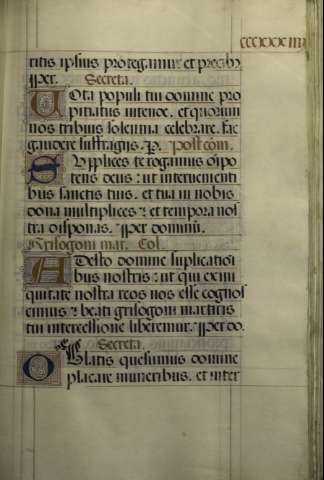 ritis ipsius protegamur et precibꝫ
ꝑper. Secreta.
Vota populi tui domine pro
pitiatus intende. et quorum
nos tribuis solemnia celebrare. fac
gaudere suffragiis. ꝑ. Postcom.
Supplices te rogamus om̄po
tens deus: ut interuenienti
bus sanctis tuis. et tua in nobis
dona multiplices ⁊ et tempora nos
tra disponas. ꝑper dominū.
Grisogoni mat. Col.
Adesto domine suplicatioi
bus nostris: ut qui ex ini
quitate nostra reos nos esse cognos
cimus ⁊ beati grisogoni martiris
tui intercessione liberemur. ꝑper do.
Secreta.
Oblatis quesumus domine
placare muneribus. et inter